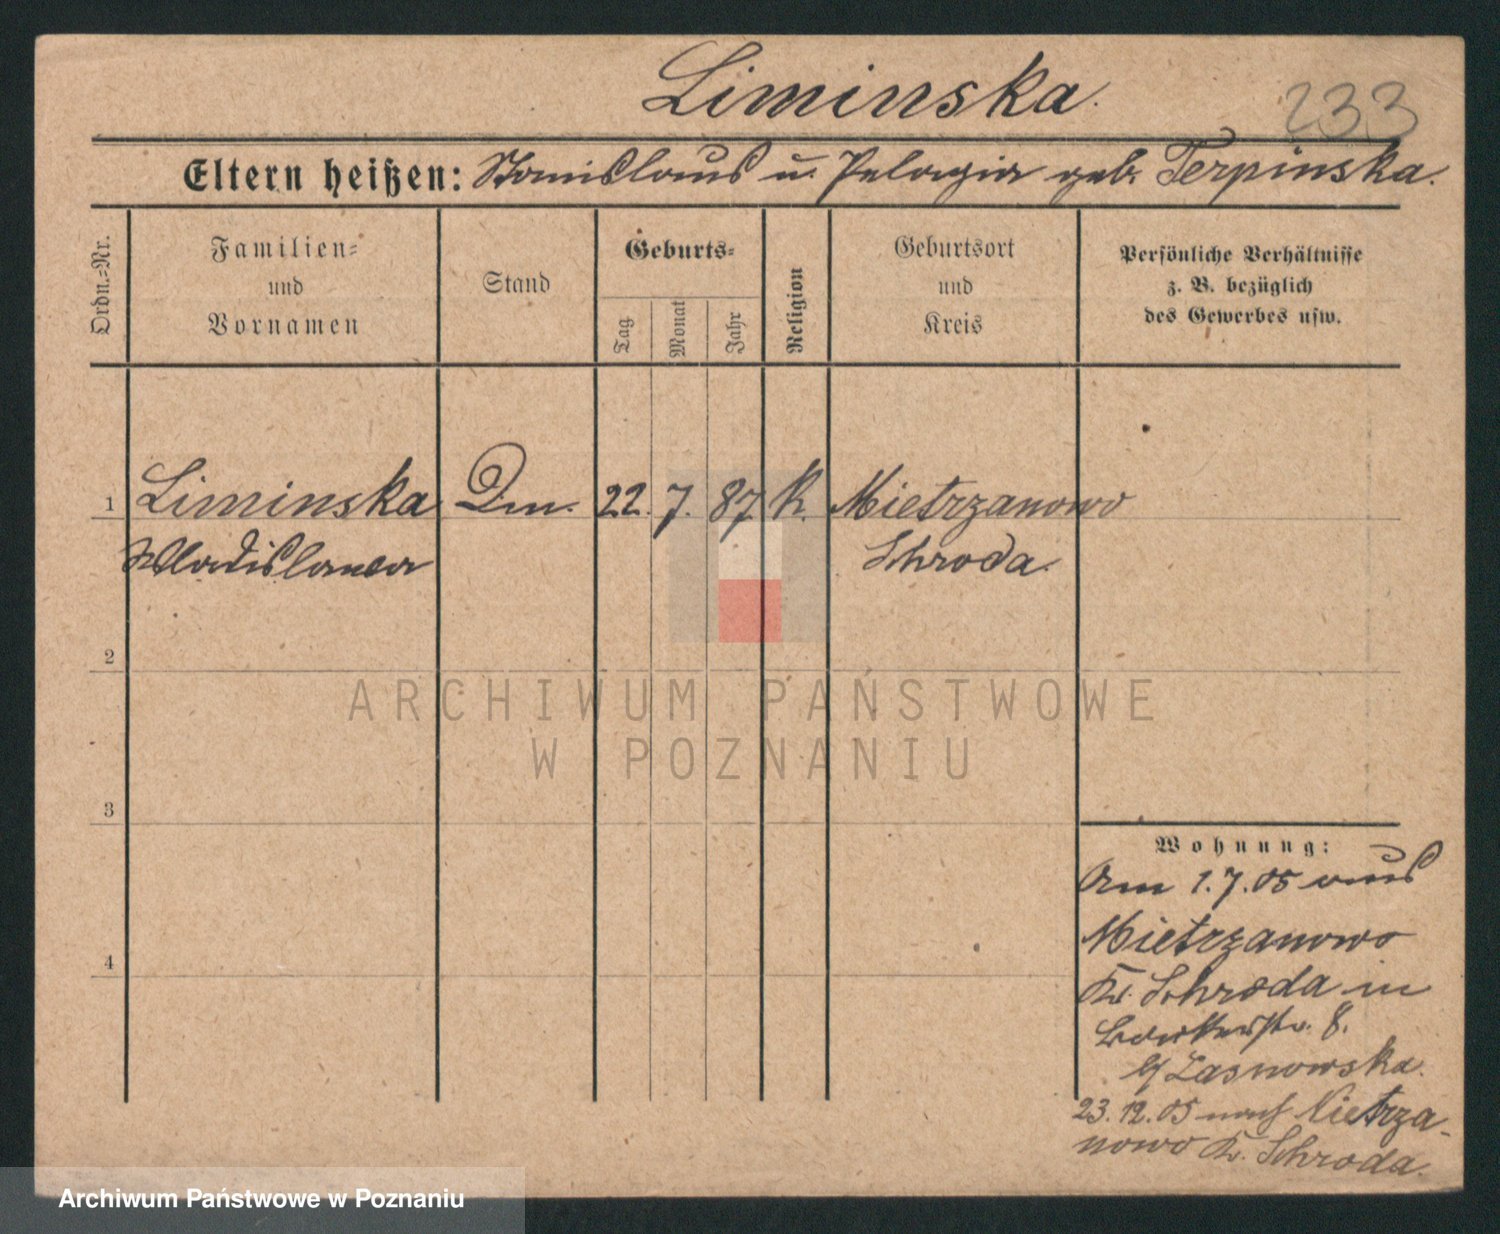 Liminska.
233
Eltern heißen: Stanislaus u. Pelagia geb. Terpinska.
Ordn.=Nr.
Familien=
und
Vornamen
Stand
Geburts=
Tag
Monat
Jahr
Religion
Geburtsort
und
Kreis
Persönliche Verhältnisse
z. B. bezüglich
des Gewerbes usw.
1 Liminska 22. 7. 87 K. Mietrzanowo
Wladislawa Schroda.
2
3
4
Wohnung:
Am 1.7.05 aus
Mietrzanowo
Kr. Schroda in
8.
b/ Lasnowska.
23.12.05 nach Mietrza-
nowo Kr. Schroda.
ARCHIWUM PAŃSTWOWE
W POZNANIU
Archiwum Państwowe w Poznaniu